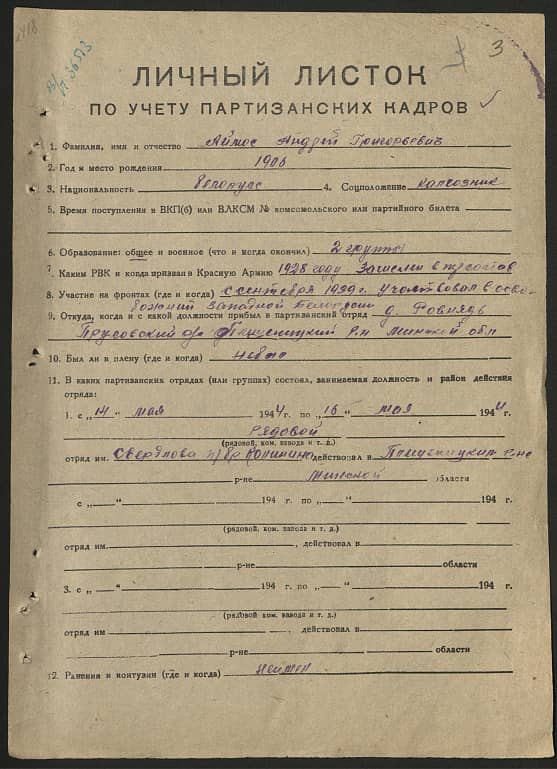 3
ЛИЧНЫЙ ЛИСТОК
ПО УЧЕТУ ПАРТИЗАНСКИХ КАДРОВ
1. Фамилия, имя и отчество Аймос Андрей Григорьевич
2. Год и место рождения 1906
3. Национальность белорус 4. Соцположение колхозник
5. Время поступления в ВКП(б) или ВЛКСМ № комсомольского или партийного билета
6. Образование: общее и военное (что и когда окончил) 2 группы
7. Каким РВК и когда призван в Красную Армию 1928 году
8. Участие на фронтах (где и когда) с сентября 1939 г. участвовал в осво-
божнии западной Белорусии
9. Откуда, когда и с какой должности прибыл в партизанский отряд д.
Плещеницкий р-н Минской обл
10. Был ли в плену (где и когда) небыл
11. В каких партизанских отрядах (или группах) состоял, занимаемая должность и район действия
отряда:
1. с „14“ мая 1944 г. по „16“ мая 1944
Рядовой
(рядовой, ком. взвода и т. д.)
отряд им. Свердлова п/бр Калинина действовал в Плещеницким р-не
р-не Минской области
с „ “ 194 г. по „ “ 194 г.
(рядовой, ком. взвода и т. д.)
отряд им. , действовал в
р-не области
3. с „ “ 194 г. по „ “ 194 г.
(рядовой, ком. взвода и т. д.)
отряд им , действовал в
р-не области
12. Ранения и контузии (где и когда) неимел